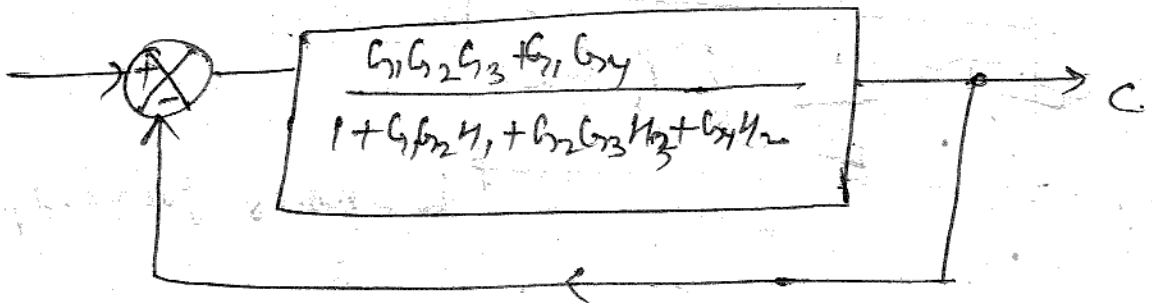 +
G₁G₂G₃ + G₁G₄
1 + G₁G₂H₁ + G₂G₃H₃ + G₄H₂
-
C.